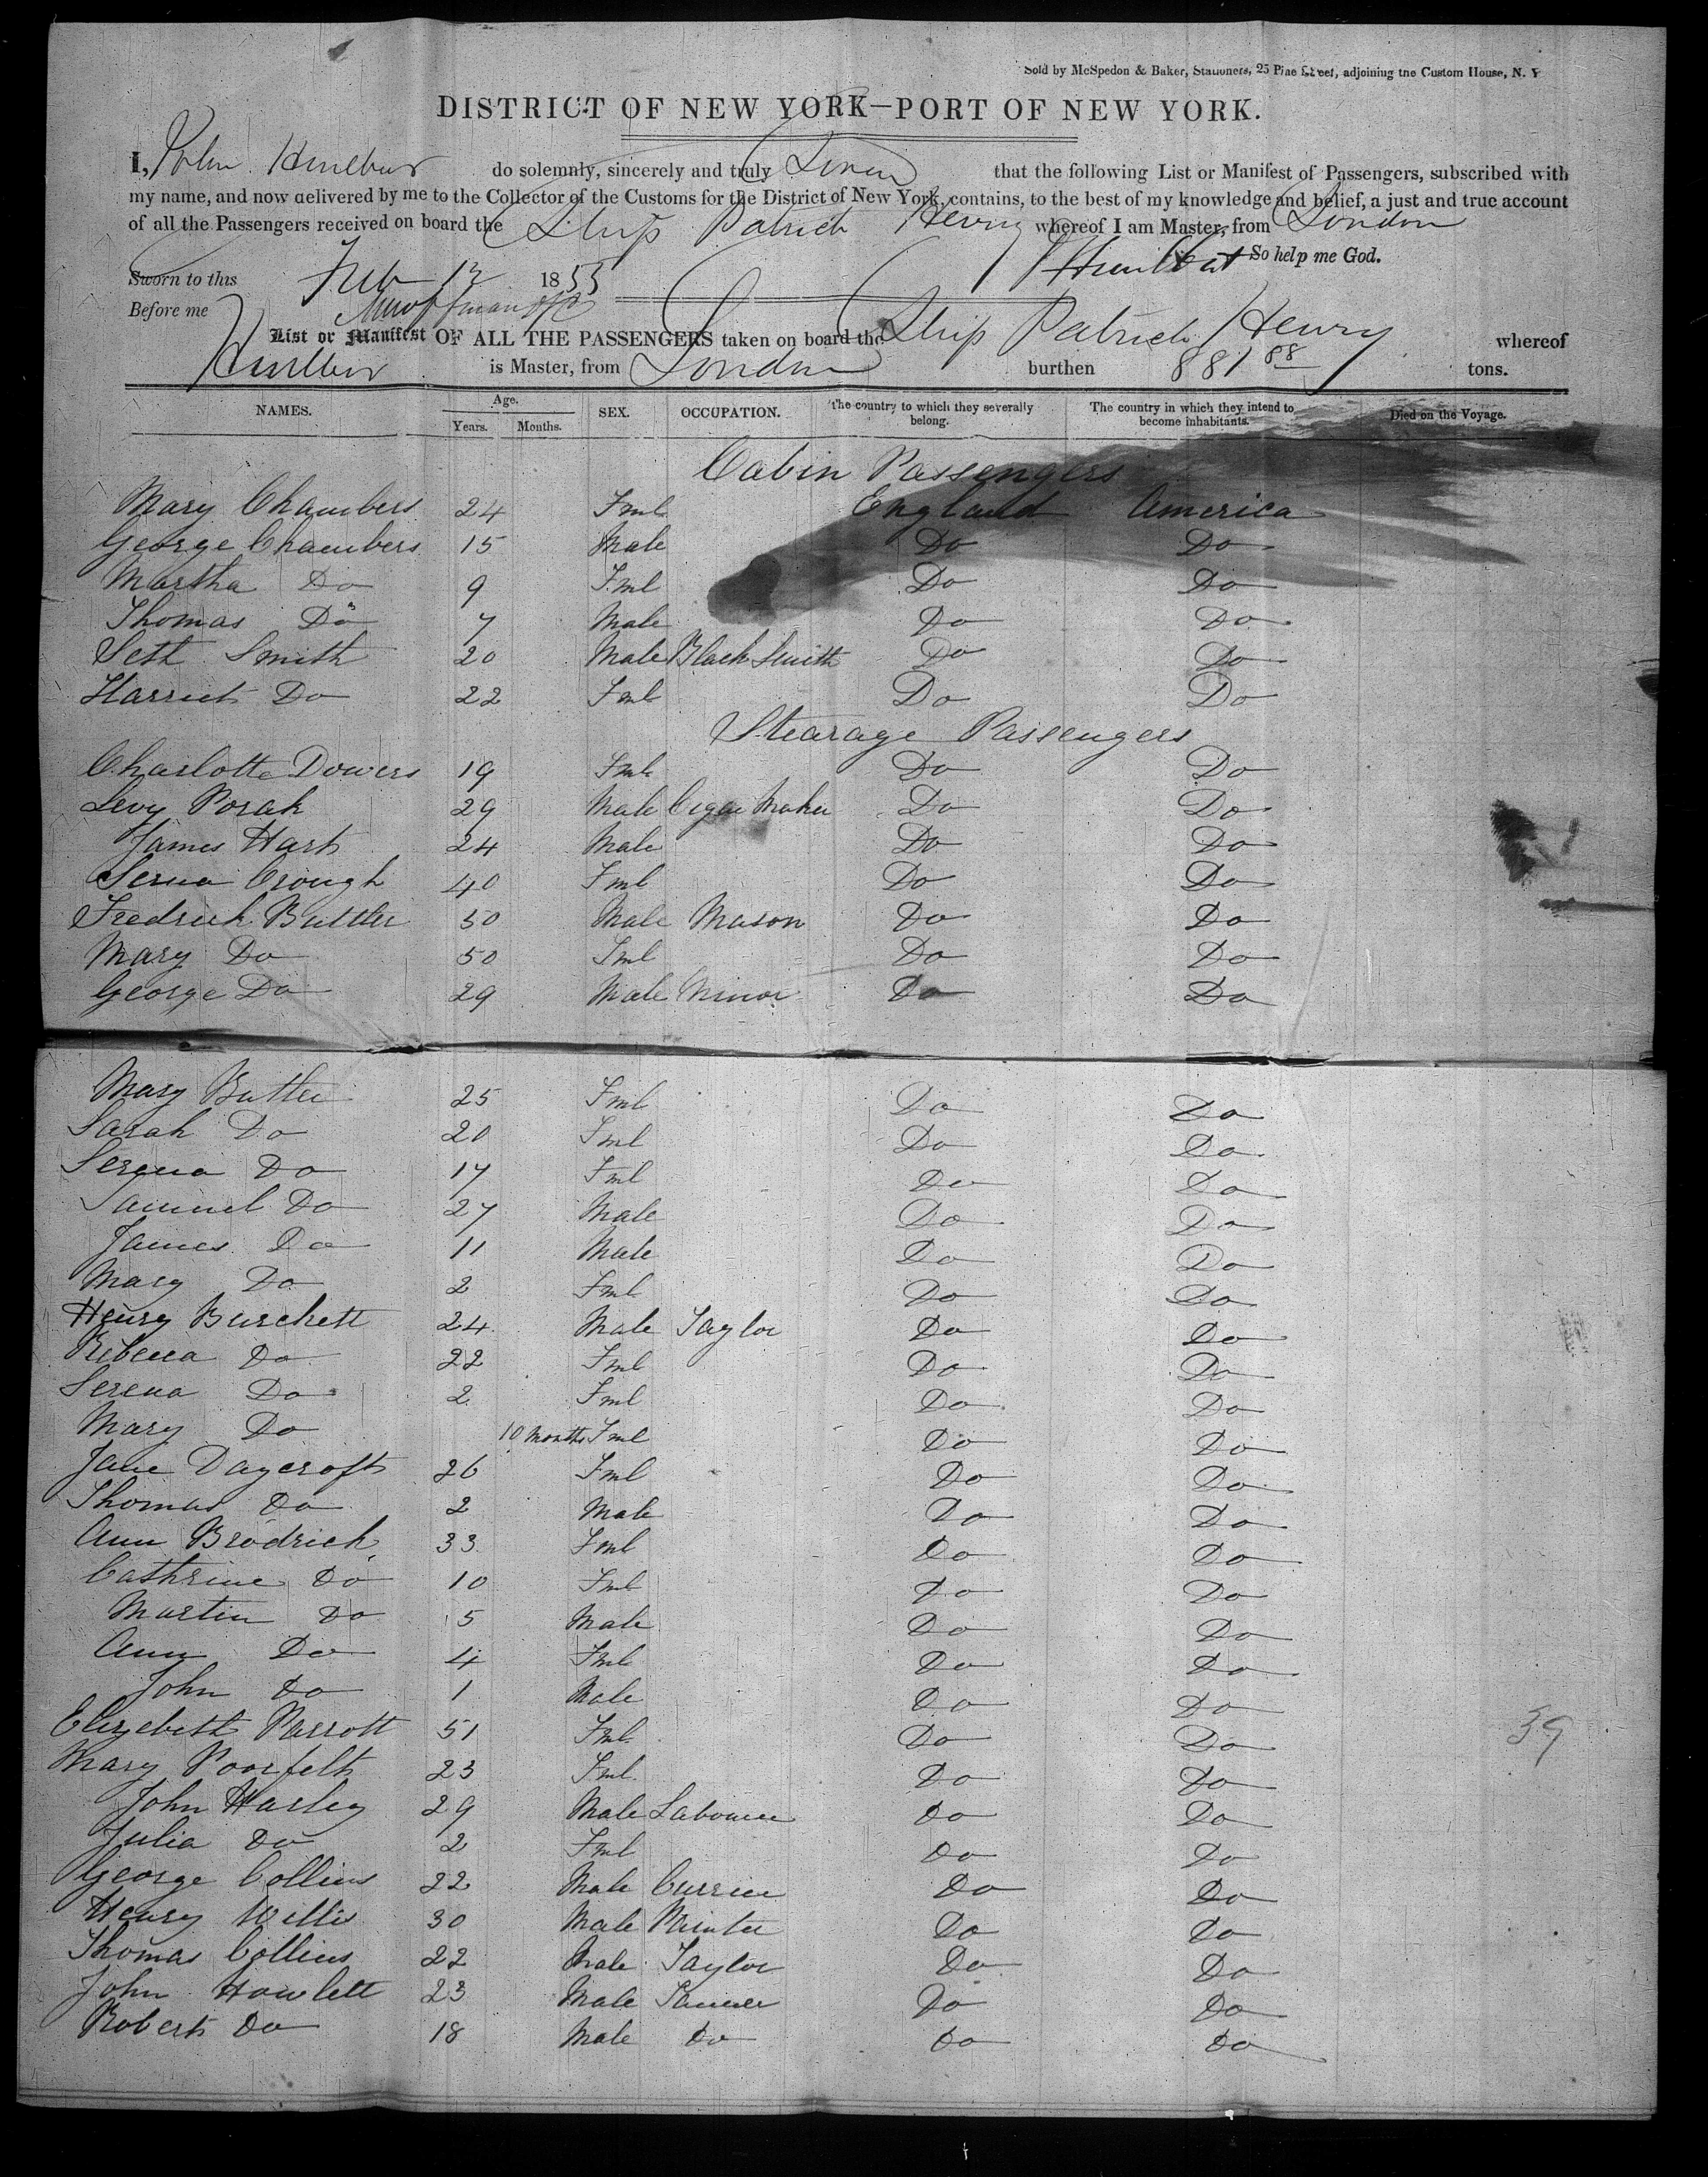 Sold by McSpedon & Baker, Stationers, 25 Pine Street, adjoining the Custom House, N. Y
DISTRICT OF NEW YORK—PORT OF NEW YORK.
I, John Hurlbut do solemnly, sincerely and truly Swear that the following List or Manifest of Passengers, subscribed with
my name, and now delivered by me to the Collector of the Customs for the District of New York, contains, to the best of my knowledge and belief, a just and true account
of all the Passengers received on board the Ship Patrick Henry whereof I am Master, from London
So help me God.
Sworn to this Feb 12 1853 J Hurlbut
Before me
List or Manifest OF ALL THE PASSENGERS taken on board the Ship Patrick Henry whereof
Hurlbut is Master, from London burthen 881 88 tons.
NAMES. Age. Years. Months. SEX. OCCUPATION. The country to which they severally belong. The country in which they intend to become inhabitants. Died on the Voyage.
Cabin Passengers
Mary Chambers 24 Fml England America
George Chambers 15 Male Do Do
Martha Do 9 Fml Do Do
Thomas Do 7 Male Do Do
Seth Smith 20 Male Black Smith Do Do
Harriet Do 22 Fml Do Do
Stearage Passengers
Charlotte Dowers 19 Fml Do Do
Levy Porah 29 Male Cigar Maker Do Do
James Hart 24 Male Do Do
Serua Crough 40 Fml Do Do
Fredrick Buttler 50 Male Mason Do Do
Mary Do 50 Fml Do Do
George Do 29 Male Minor Do Do
Mary Butler 25 Fml Do Do
Sarah Do 20 Fml Do Do
Serena Do 17 Fml Do Do
Samuel Do 27 Male Do Do
James Do 11 Male Do Do
Mary Do 2 Fml Do Do
Henry Burchett 24 Male Taylor Do Do
Rebecca Do 22 Fml Do Do
Serena Do 2 Fml Do Do
Mary Do 10 Months Fml Do Do
Jane Daycroft 26 Fml Do Do
Thomas Do 2 Male Do Do
Ann Brodrick 33 Fml Do Do
Cathrine Do 10 Fml Do Do
Martin Do 5 Male Do Do
Ann Do 4 Fml Do Do
John Do 1 Male Do Do
Elizebeth Parrott 51 Fml Do Do 39
Mary Poorfelt 23 Fml Do Do
John Harley 29 Male Labourer Do Do
Julia Do 2 Fml Do Do
George Collins 22 Male Currier Do Do
Henry Willis 30 Male Painter Do Do
Thomas Collins 22 Male Taylor Do Do
John Howlett 23 Male Tanner Do Do
Robert Do 18 Male Do Do Do